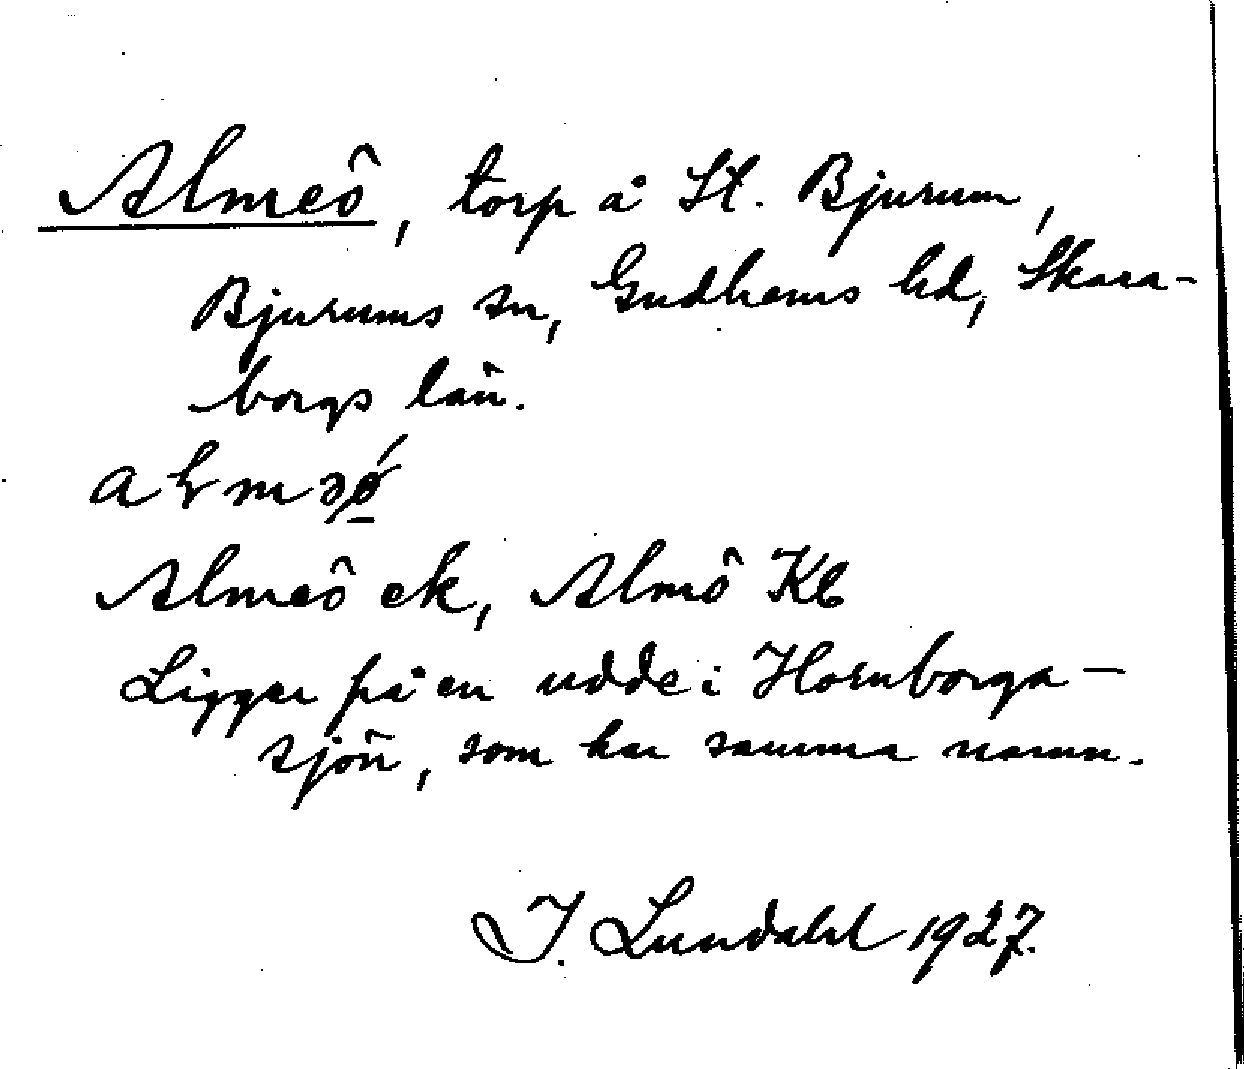 Almeö, torp å St. Bjurum,
Bjurums sn, Gudhems hd, Skara-
borgs län.
Almeö ek, Almö Kb
Ligger på en udde i Hornborga-
sjön, som har samma namn.
I. Lundahl 1927.